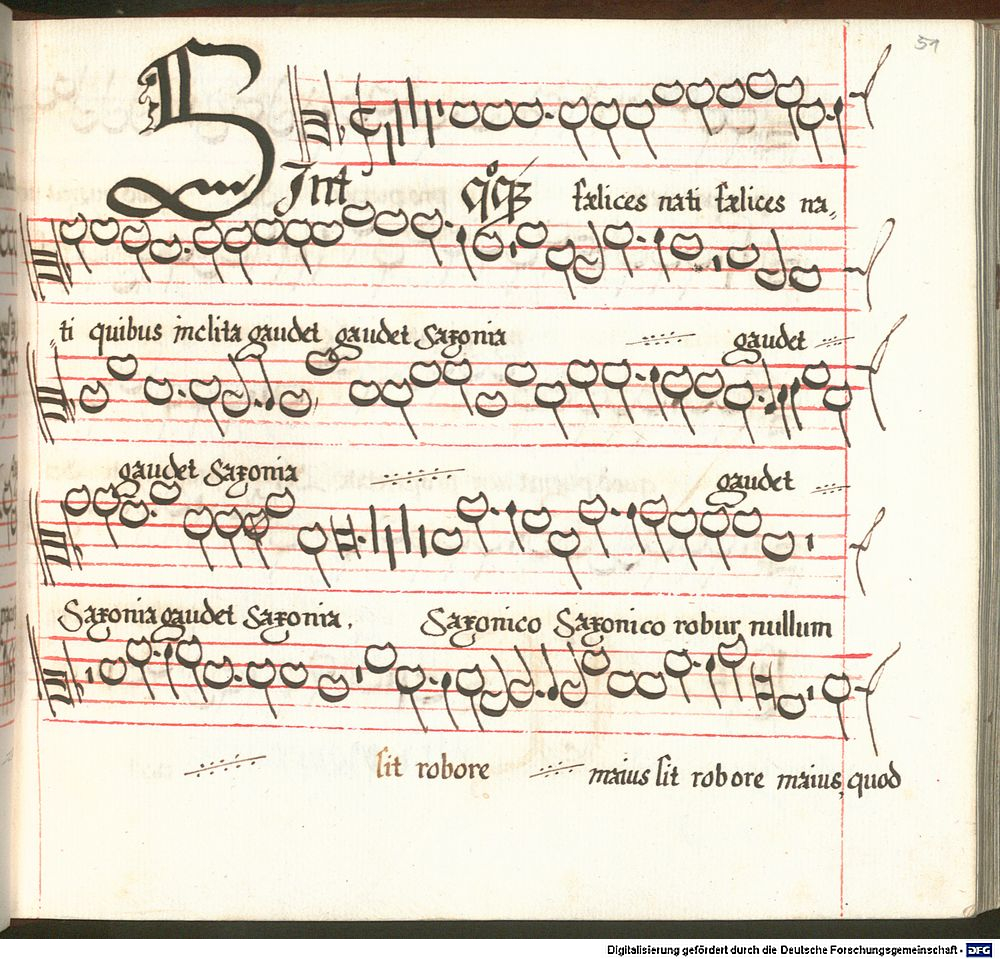 51
Sint q°q₃ fælices nati fælices na,,
ti quibus inclita gaudet gaudet Saxonia gaudet
gaudet Saxonia gaudet
Saxonia gaudet Saxonia, Saxonico Saxonico robur nullum
sit robore maius sit robore maius, quod
Digitalisierung gefördert durch die Deutsche Forschungsgemeinschaft - DFG